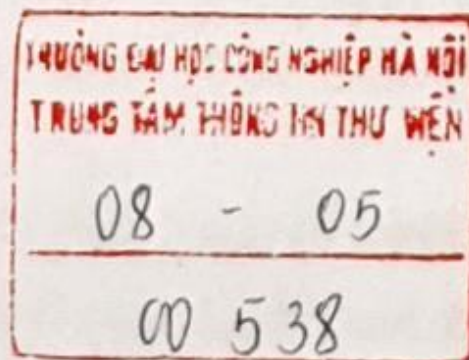 TRƯỜNG ĐẠI HỌC CÔNG NGHIỆP HÀ NỘI
TRUNG TÂM THÔNG TIN THƯ VIỆN
08 - 05
00 538